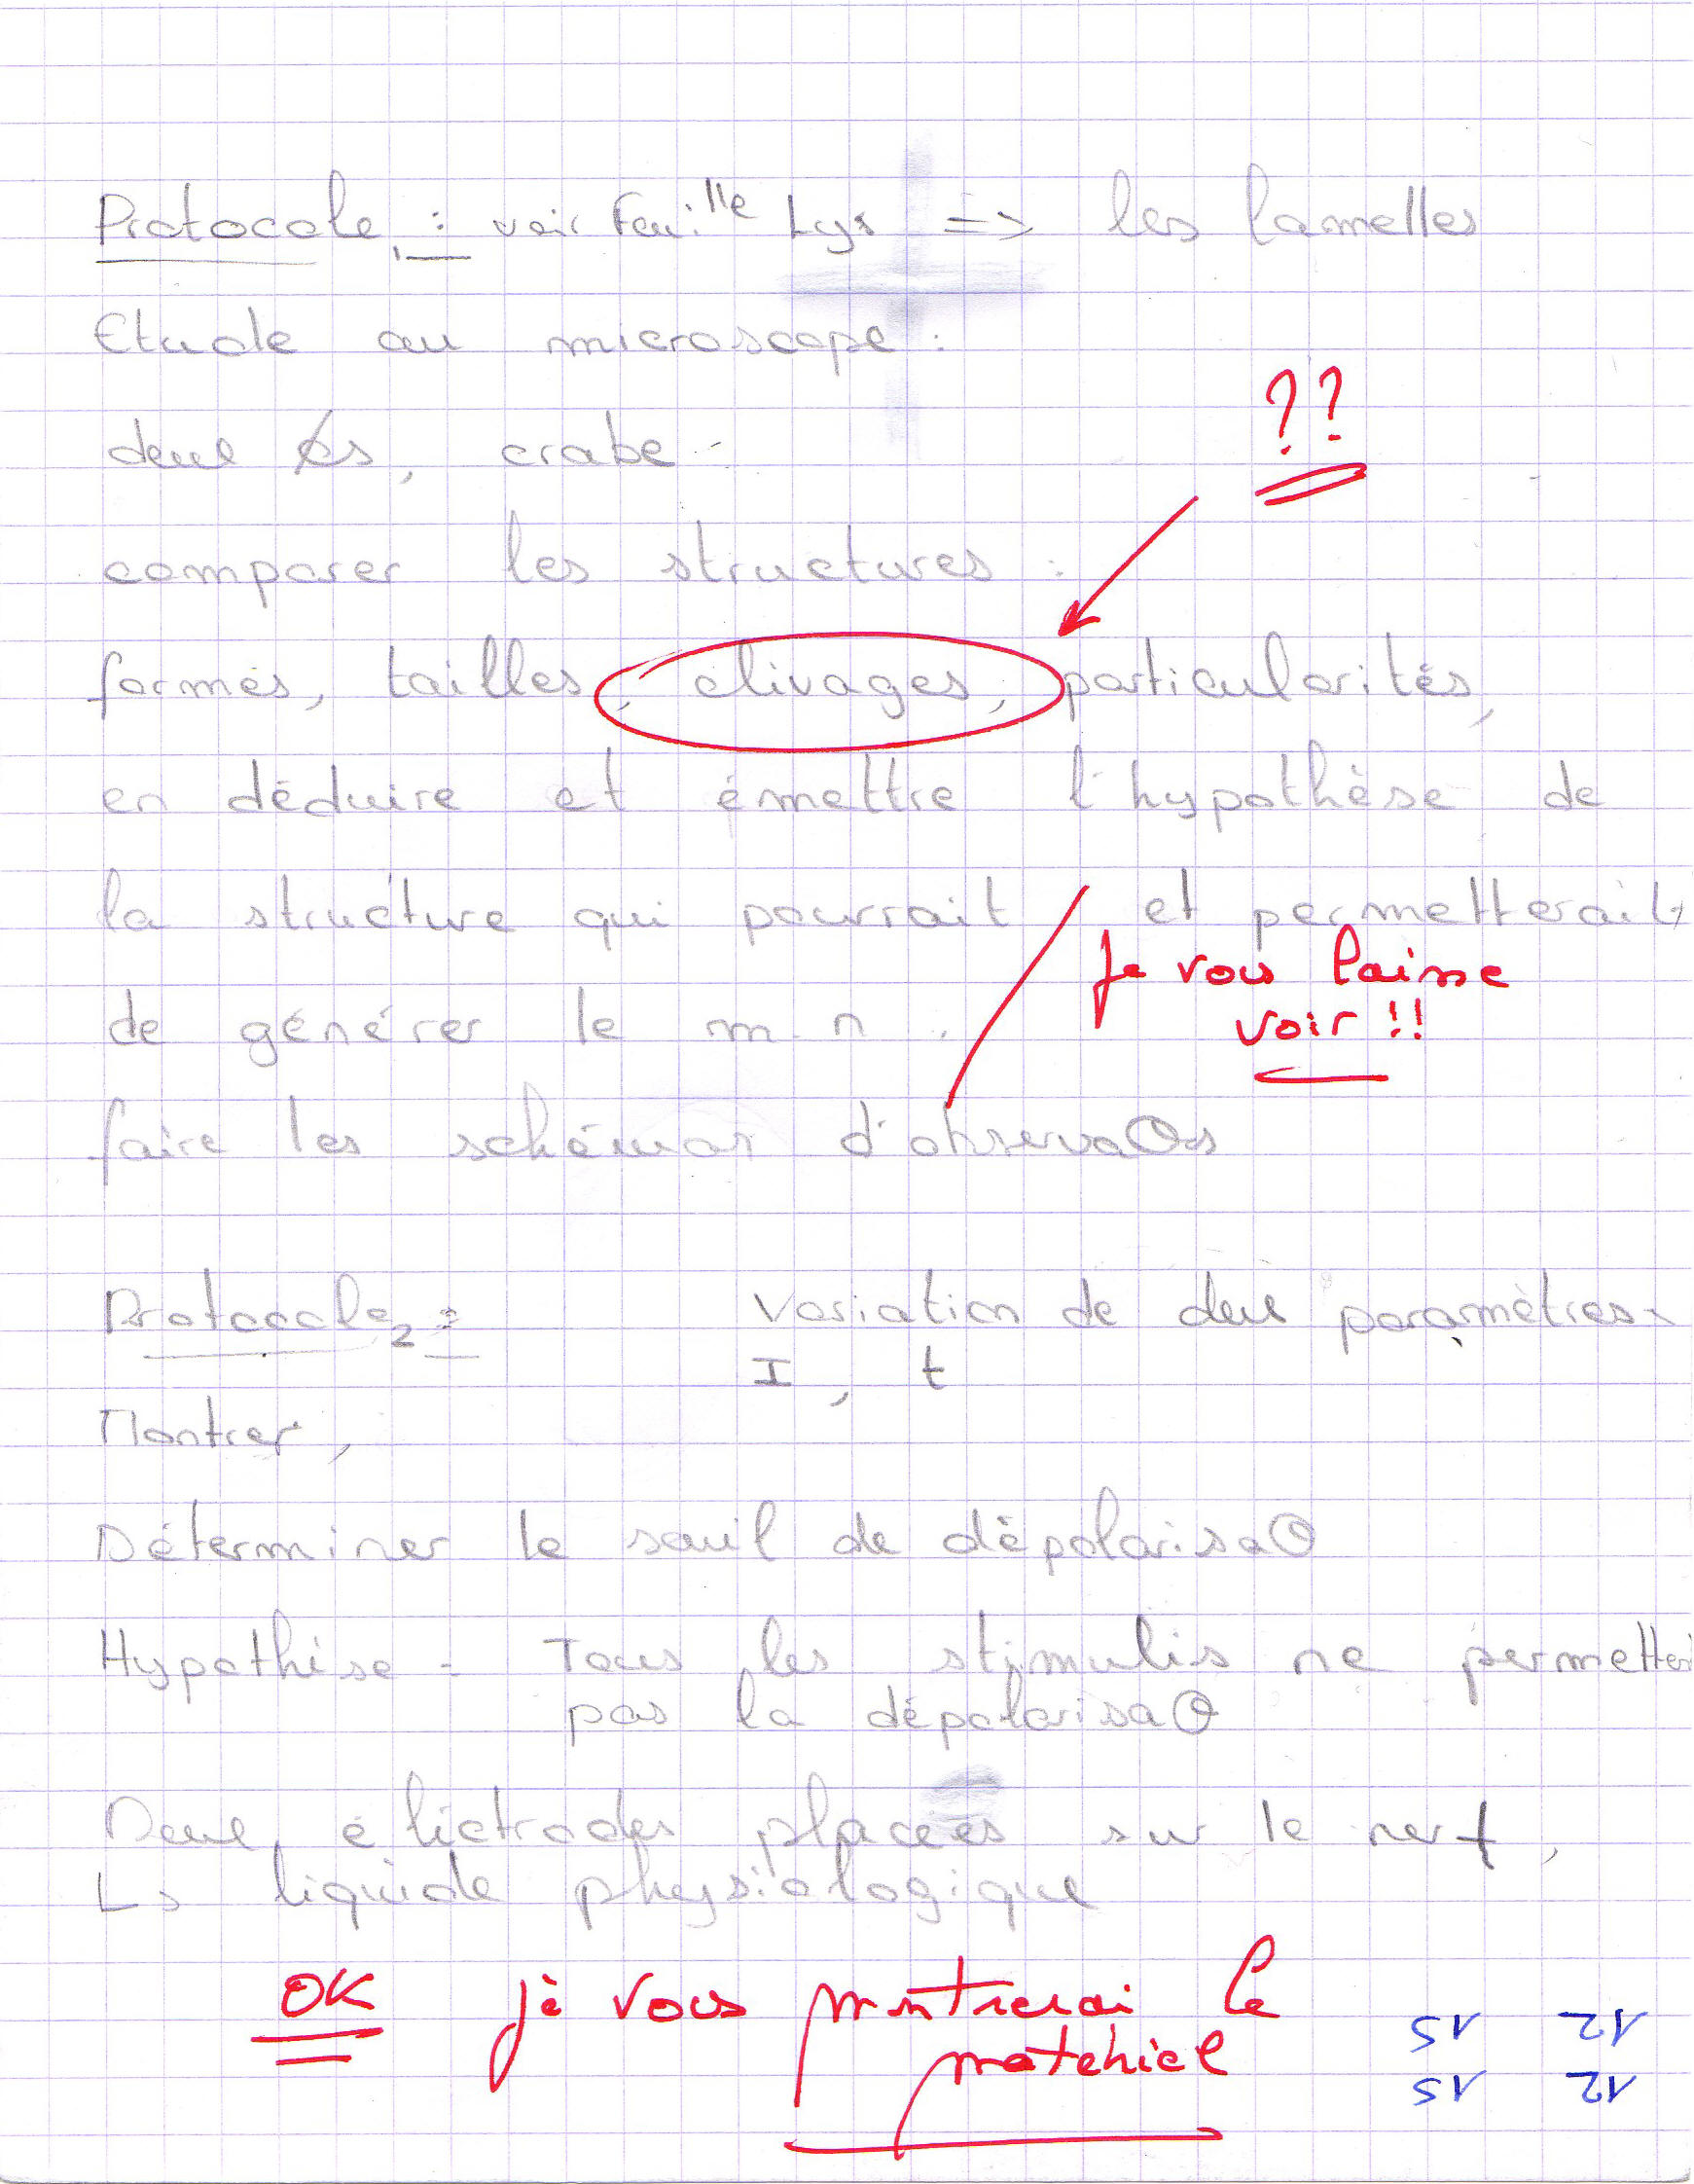 Protocole 1 : voir Feuille Lys => les lamelles
Etude au microscope :
??
deux , crabe
comparer les structures :
formes, tailles, clivages, particularités,
en déduire et émettre l'hypothèse de
la structure qui pourrait et permetterait
Je vous laisse
voir !!
de générer le m.n.
faire les schémas d'observaΘs
Protocole 2 : Variation de deux paramètres
I, t
Montrer,
Déterminer le seuil de dépolarisaΘ
Hypothèse - Tous les stimulis ne
pas la dépolarisaΘ
Deux électrodes placées sur le nerf,
↳ liquide physiologique
OK je vous montrerai le
matériel
12 15
12 15